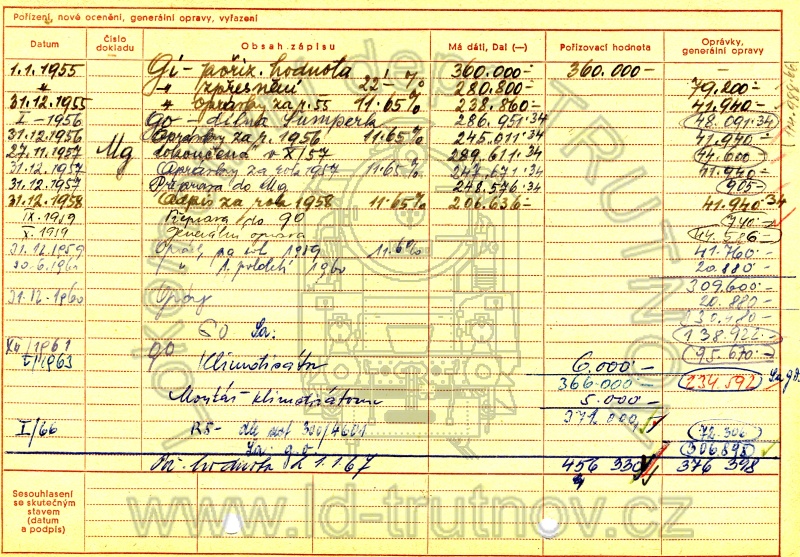 Pořízení, nové ocenění, generální opravy, vyřazení
Datum Číslo dokladu Obsah zápisu Má dáti, Dal (—) Pořizovací hodnota Oprávky, generální opravy
1.1.1955 Gi - poříz. hodnota 360.000.- 360.000.- -
" " zpřesnění 22% 280.800.- 79.200.-
31.12.1955 " oprávky za r. 55 11.65% 238.860.- 41.940.-
I - 1956 Go - dílna Šumperk 286.951.34 48.091.34
31.12.1956 Oprávky za r. 1956 11.65% 245.011.34 41.940.-
27.11.1957 Mg v X/57 289.611.34 44.600.-
31.12.1957 Oprávky za rok 1957 11.65% 247.671.34 41.940.-
31.12.1957 Přeprava do Mg 248.576.34 905.-
31.12.1958 Odpis za rok 1958 11.65% 206.636.- 41.940.34
IX. 1959 Přeprava do go 740.-
X. 1959 Generální oprava 44.586.-
31.12.1959 rok 1959 11.6% 41.760.-
30.6.1960 1. pololetí 1960 20.880.-
309.600.-
31.12.1960 20.880.-
GO 138.922.-
XII/1961 go 95.670.-
V/1963 Klimatizátor 6.000.-
366.000.- 234.592
Montáž klimatizátoru 5.000.-
371.000,-
I/66 300/4601 72.306
306.898
hodnota 1.1.67 456 330 376 398
Sesouhlasení se skutečným stavem (datum a podpis)
www.ld-trutnov.cz